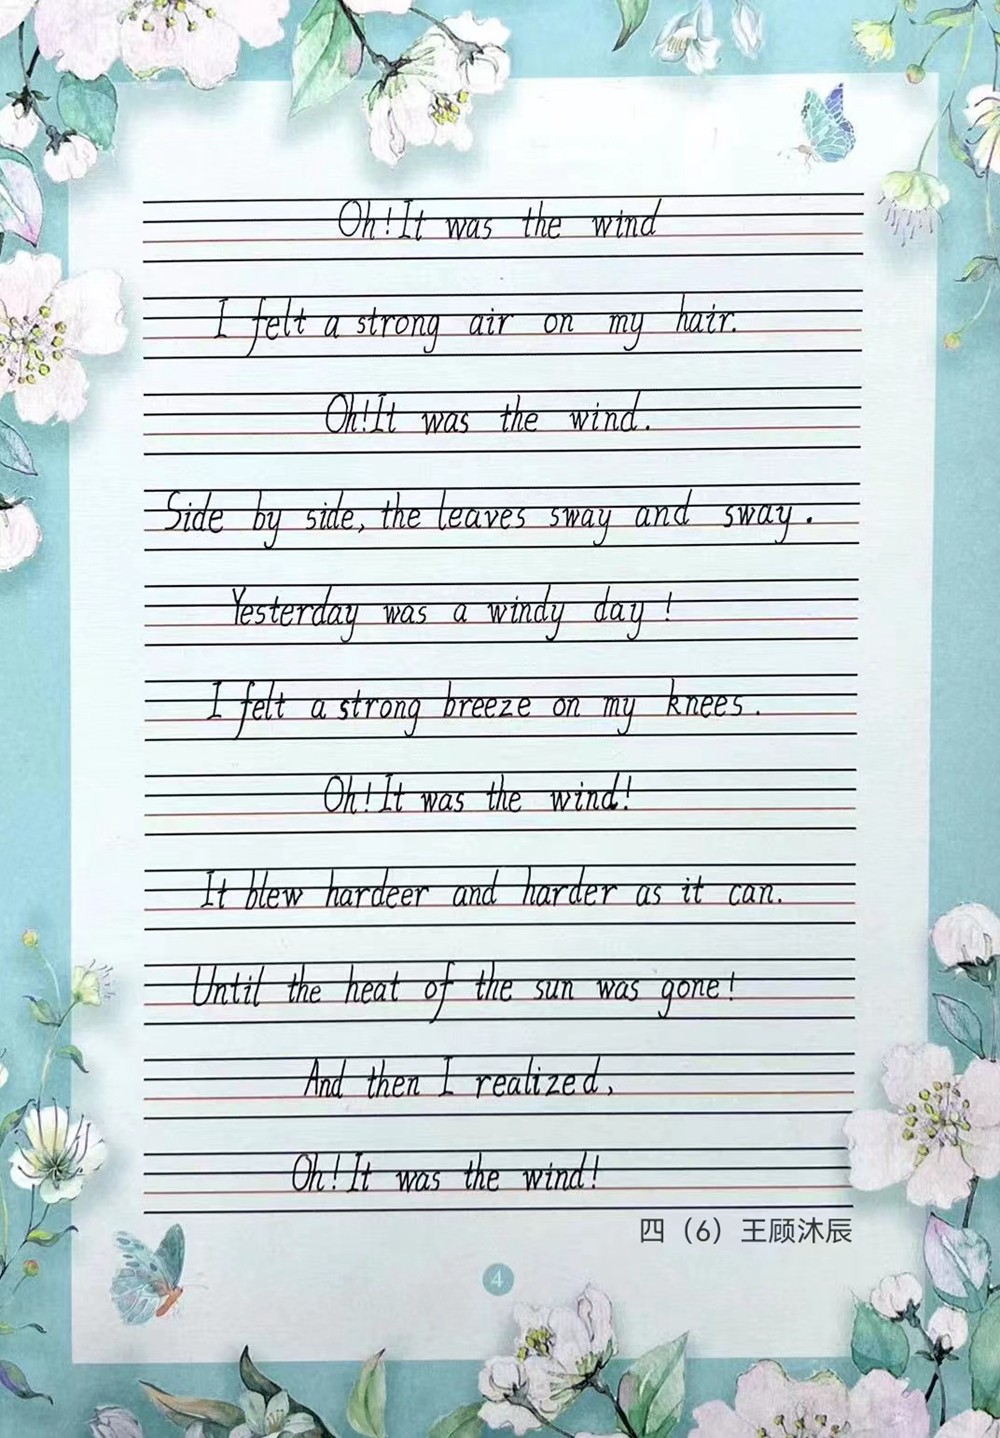 Oh! It was the wind
I felt a strong air on my hair.
Oh! It was the wind.
Side by side, the leaves sway and sway.
Yesterday was a windy day!
I felt a strong breeze on my knees.
Oh! It was the wind!
It blew hardeer and harder as it can.
Until the heat of the sun was gone!
And then I realized,
Oh! It was the wind!
四（6）王顾沐辰
4